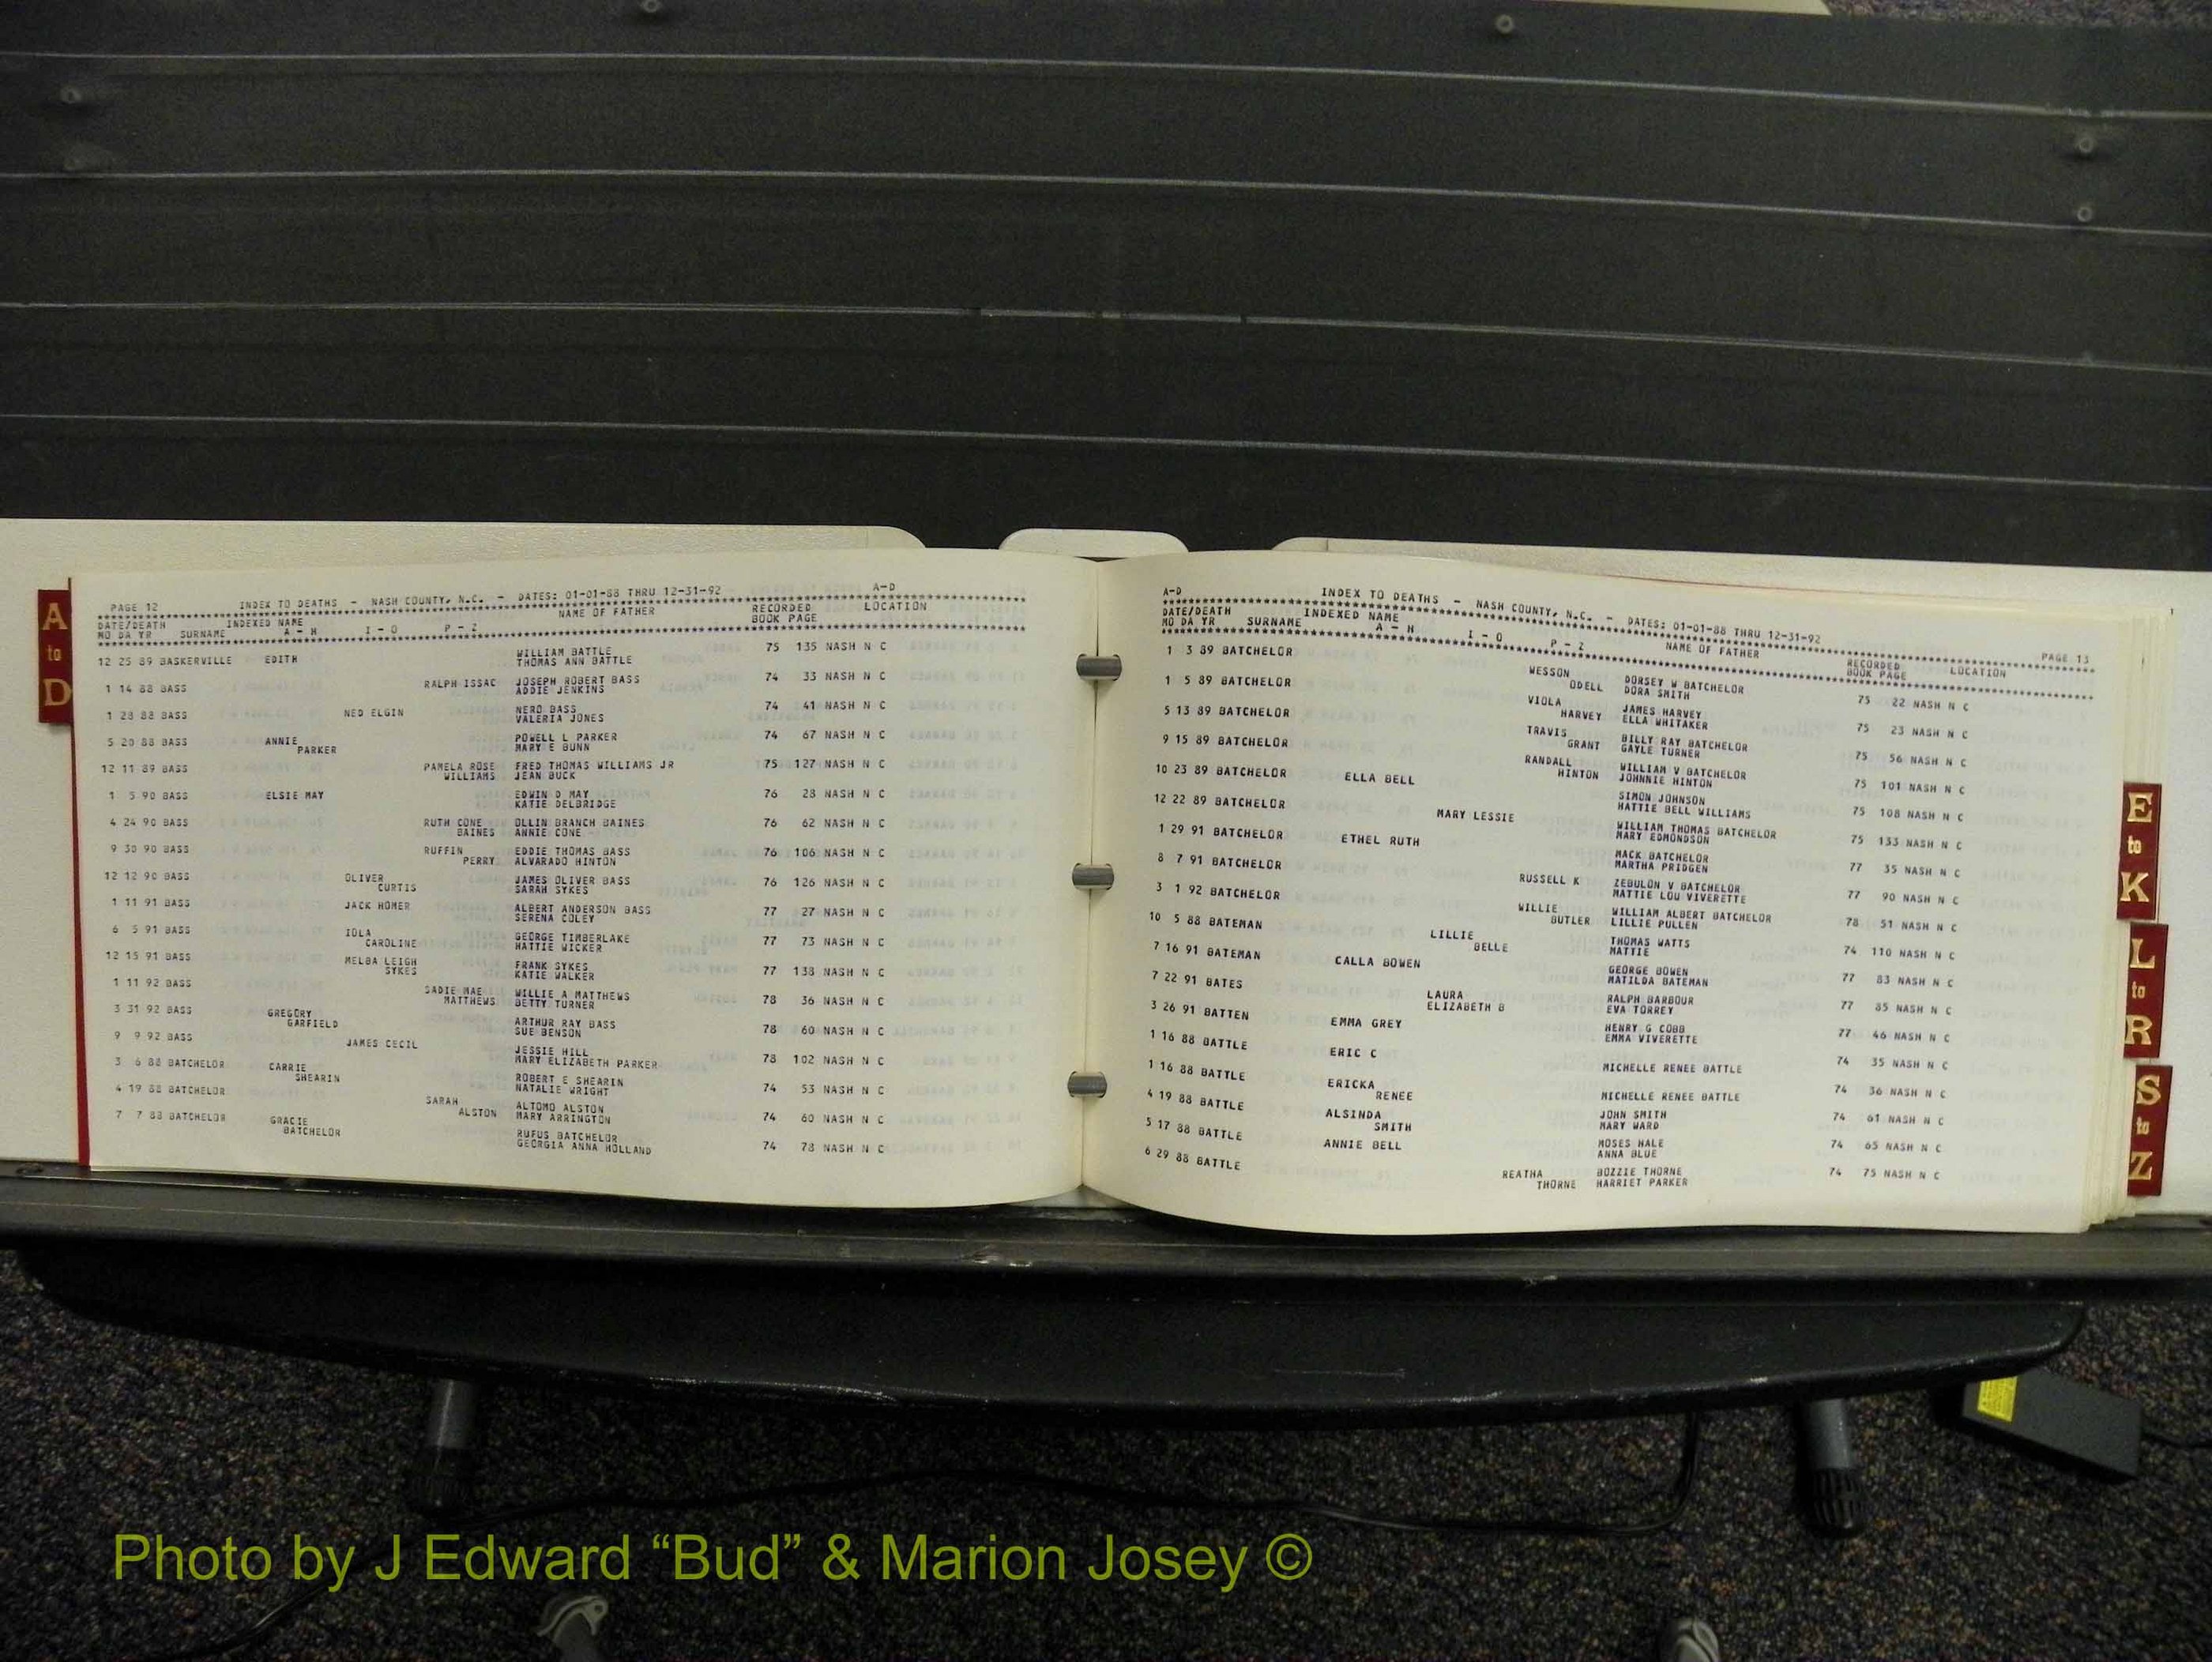 A
to
D
PAGE 12 INDEX TO DEATHS - NASH COUNTY, N.C. - DATES: 01-01-88 THRU 12-31-92 A-D
DATE/DEATH INDEXED NAME NAME OF FATHER RECORDED LOCATION
MO DA YR SURNAME A - H I - O P - Z BOOK PAGE
12 25 89 BASKERVILLE EDITH WILLIAM BATTLE 75 135 NASH N C
THOMAS ANN BATTLE
1 14 88 BASS RALPH ISSAC JOSEPH ROBERT BASS 74 33 NASH N C
ADDIE JENKINS
1 28 88 BASS NED ELGIN NERO BASS 74 41 NASH N C
VALERIA JONES
5 20 88 BASS ANNIE POWELL L PARKER 74 67 NASH N C
PARKER MARY E BUNN
12 11 89 BASS PAMELA ROSE FRED THOMAS WILLIAMS JR 75 127 NASH N C
WILLIAMS JEAN BUCK
1 5 90 BASS ELSIE MAY EDWIN D MAY 76 28 NASH N C
KATIE DELBRIDGE
4 24 90 BASS RUTH CONE OLLIN BRANCH BAINES 76 62 NASH N C
BAINES ANNIE CONE
9 30 90 BASS RUFFIN EDDIE THOMAS BASS 76 106 NASH N C
PERRY ALVARADO HINTON
12 12 90 BASS OLIVER JAMES OLIVER BASS 76 126 NASH N C
CURTIS SARAH SYKES
1 11 91 BASS JACK HOMER ALBERT ANDERSON BASS 77 27 NASH N C
SERENA COLEY
6 5 91 BASS IOLA GEORGE TIMBERLAKE 77 73 NASH N C
CAROLINE HATTIE WICKER
12 15 91 BASS MELBA LEIGH FRANK SYKES 77 138 NASH N C
SYKES KATIE WALKER
1 11 92 BASS SADIE MAE WILLIE A MATTHEWS 78 36 NASH N C
MATTHEWS BETTY TURNER
3 31 92 BASS GREGORY ARTHUR RAY BASS 78 60 NASH N C
GARFIELD SUE BENSON
9 9 92 BASS JAMES CECIL JESSIE HILL 78 102 NASH N C
MARY ELIZABETH PARKER
3 6 88 BATCHELOR CARRIE ROBERT E SHEARIN 74 53 NASH N C
SHEARIN NATALIE WRIGHT
4 19 88 BATCHELOR SARAH ALTOMO ALSTON 74 60 NASH N C
ALSTON MARY ARRINGTON
7 7 88 BATCHELOR GRACIE RUFUS BATCHELOR 74 78 NASH N C
BATCHELOR GEORGIA ANNA HOLLAND
A-D INDEX TO DEATHS - NASH COUNTY, N.C. - DATES: 01-01-88 THRU 12-31-92 PAGE 13
DATE/DEATH INDEXED NAME NAME OF FATHER RECORDED LOCATION
MO DA YR SURNAME A - H I - O P - Z BOOK PAGE
1 3 89 BATCHELOR WESSON DORSEY W BATCHELOR 75 22 NASH N C
ODELL DORA SMITH
1 5 89 BATCHELOR VIOLA JAMES HARVEY 75 23 NASH N C
HARVEY ELLA WHITAKER
5 13 89 BATCHELOR TRAVIS BILLY RAY BATCHELOR 75 56 NASH N C
GRANT GAYLE TURNER
9 15 89 BATCHELOR RANDALL WILLIAM V BATCHELOR 75 101 NASH N C
HINTON JOHNNIE HINTON
10 23 89 BATCHELOR ELLA BELL SIMON JOHNSON 75 108 NASH N C
HATTIE BELL WILLIAMS
12 22 89 BATCHELOR MARY LESSIE WILLIAM THOMAS BATCHELOR 75 133 NASH N C
MARY EDMONDSON
1 29 91 BATCHELOR ETHEL RUTH MACK BATCHELOR 77 35 NASH N C
MARTHA PRIDGEN
8 7 91 BATCHELOR RUSSELL K ZEBULON V BATCHELOR 77 90 NASH N C
MATTIE LOU VIVERETTE
3 1 92 BATCHELOR WILLIE WILLIAM ALBERT BATCHELOR 78 51 NASH N C
BUTLER LILLIE PULLEN
10 5 88 BATEMAN LILLIE THOMAS WATTS 74 110 NASH N C
BELLE MATTIE
7 16 91 BATEMAN CALLA BOWEN GEORGE BOWEN 77 83 NASH N C
MATILDA BATEMAN
7 22 91 BATES LAURA RALPH BARBOUR 77 85 NASH N C
ELIZABETH B EVA TORREY
3 26 91 BATTEN EMMA GREY HENRY G COBB 77 46 NASH N C
EMMA VIVERETTE
1 16 88 BATTLE ERIC C MICHELLE RENEE BATTLE 74 35 NASH N C
1 16 88 BATTLE ERICKA MICHELLE RENEE BATTLE 74 36 NASH N C
RENEE
4 19 88 BATTLE ALSINDA JOHN SMITH 74 61 NASH N C
SMITH MARY WARD
5 17 88 BATTLE ANNIE BELL MOSES HALE 74 65 NASH N C
ANNA BLUE
6 29 88 BATTLE REATHA BOZZIE THORNE 74 75 NASH N C
THORNE HARRIET PARKER
E
to
K
L
to
R
S
to
Z
Photo by J Edward “Bud” & Marion Josey ©